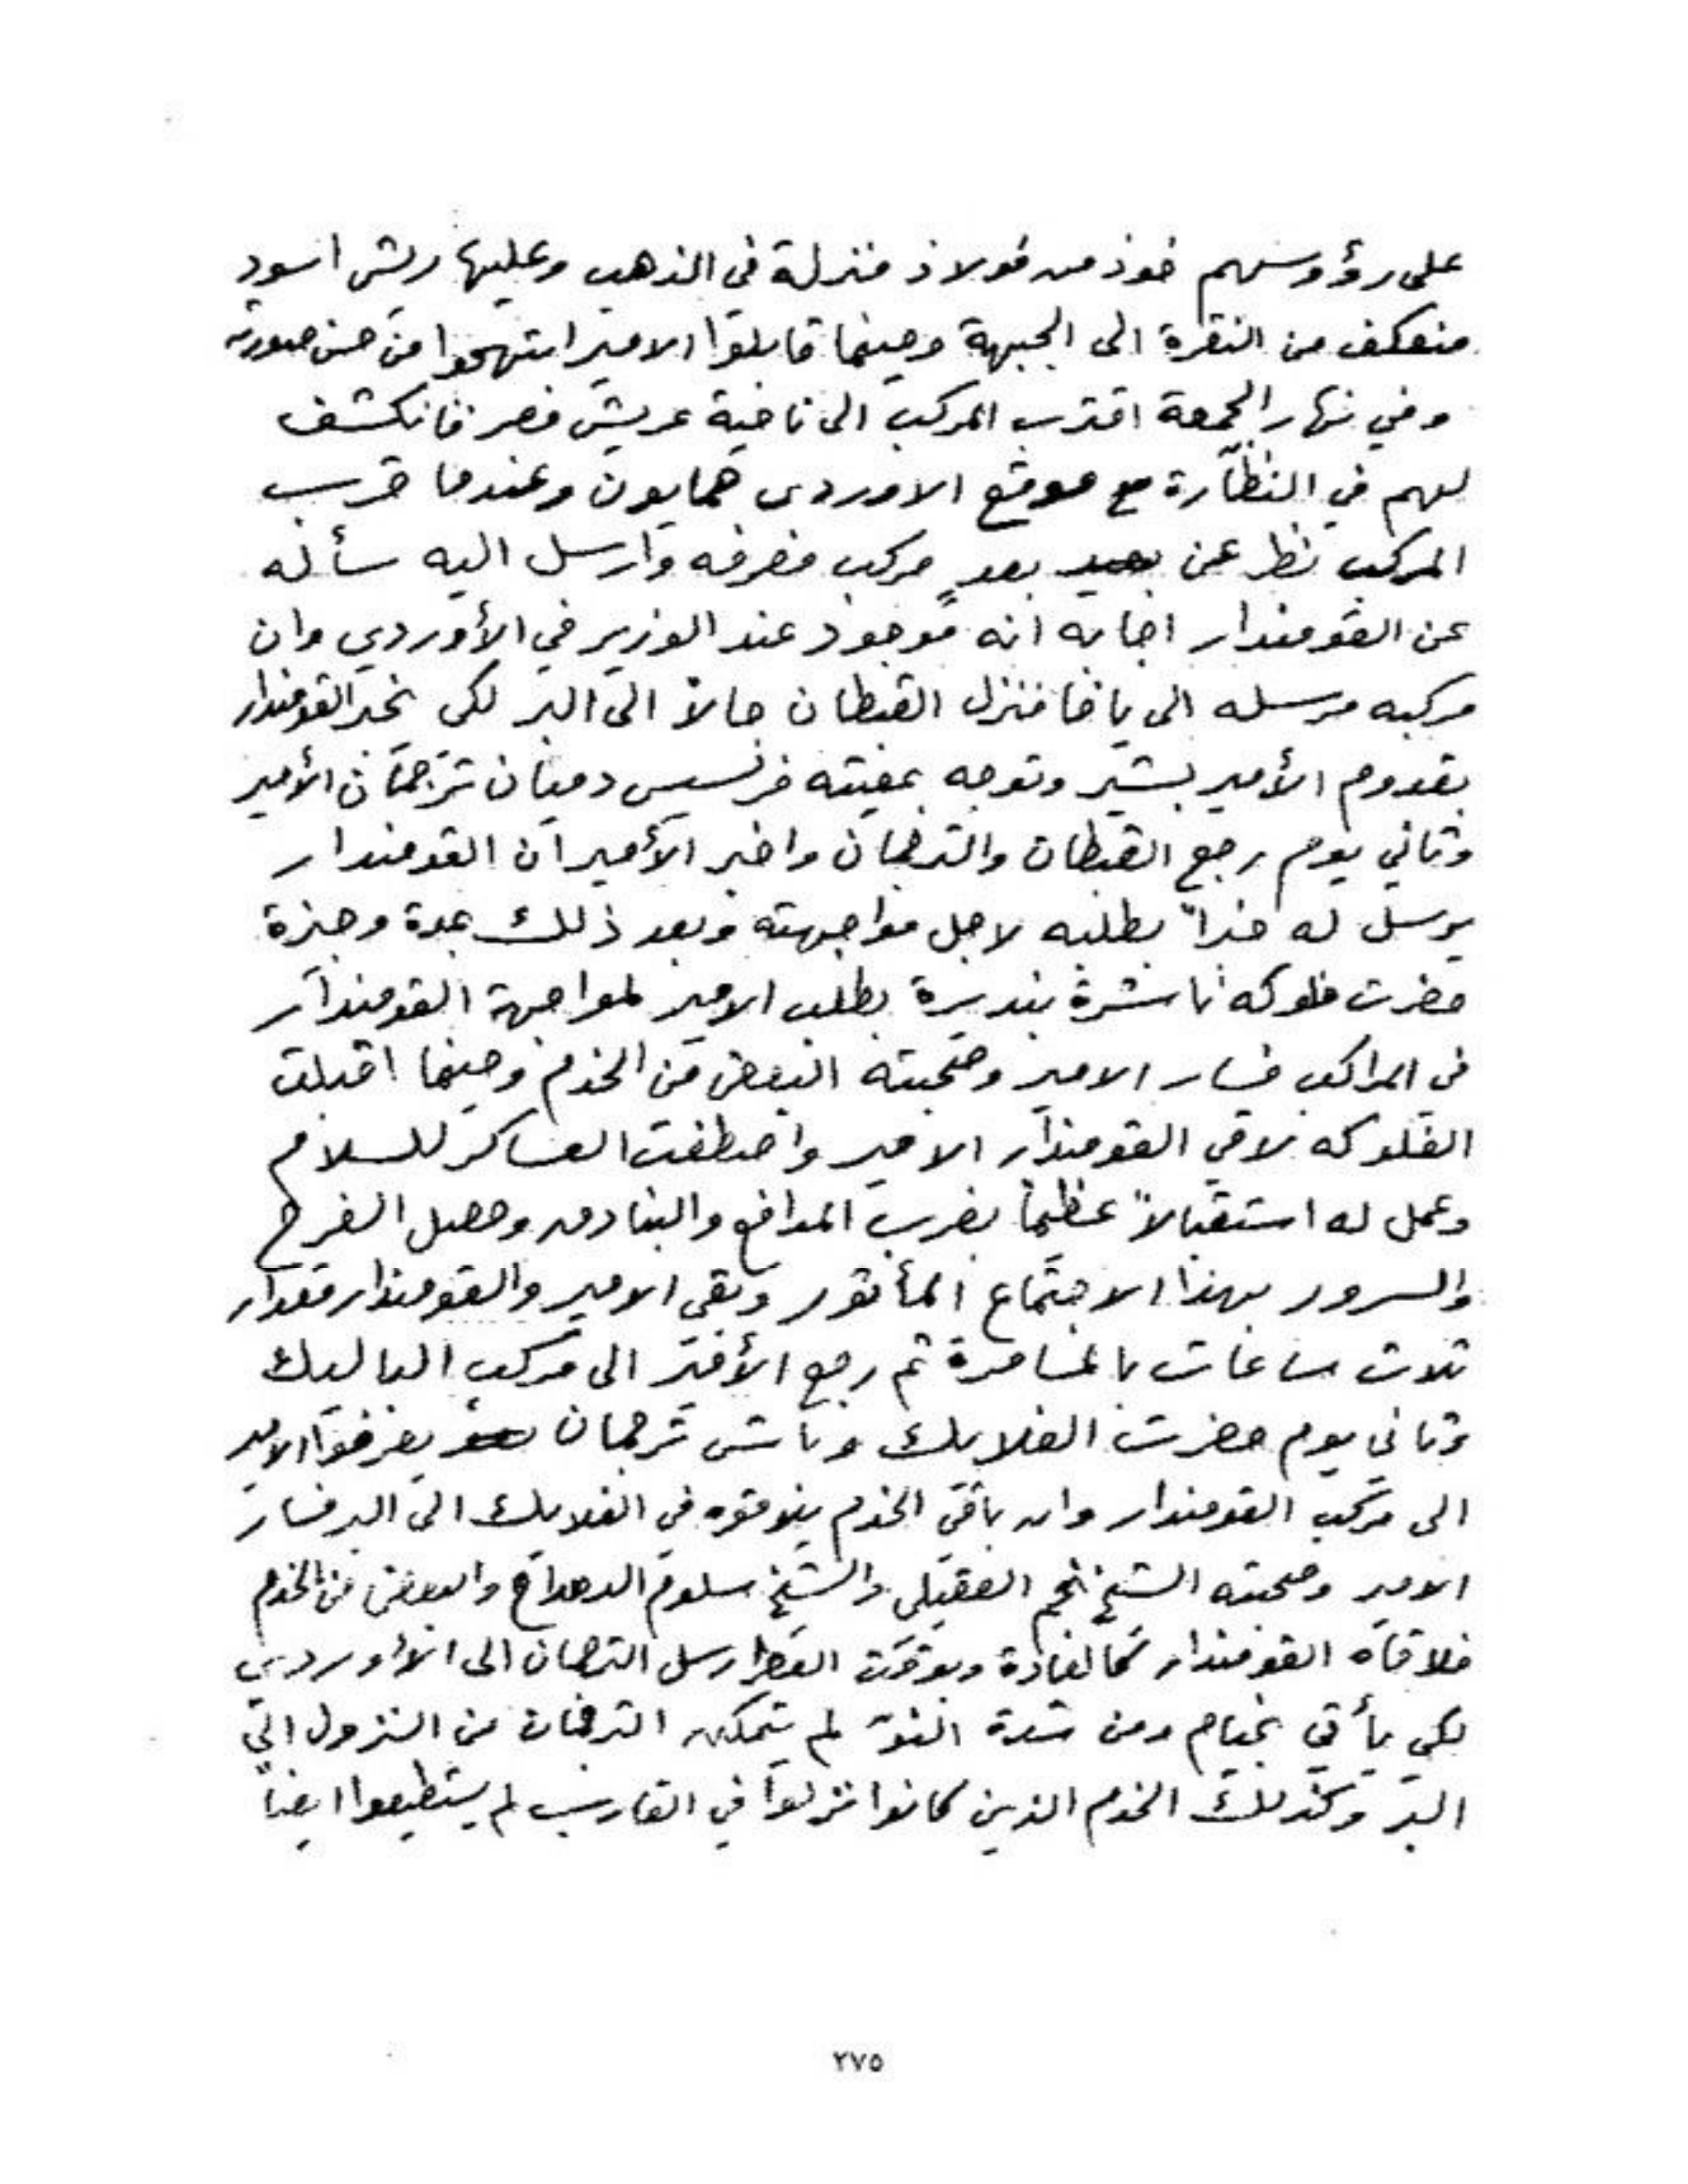 على رؤوسهم خوذ من فولاذ منزلة في الذهب وعليها ريش اسود
منعكف من النقرة الى الجبهة وحينما قابلوا الامير ابتهجوا من حسن صورته
وفي نهار الجمعة اقترب المركب الى ناحية عريش مصر فانكشف
لهم في النظّارة موقع الاوردي همايون وعندما قرب
المركب نظر عن بعدٍ مركب فعرفه وارسل اليه سأله
عن القومندار اجابه انه موجود عند الوزير في الأوردي وان
مركبه مرسله الى يافا فنزل القبطان حالاً الى البر لكي يخبر القومندار
بقدوم الأمير بشير وتوجه بمعيته فرنسيس دميان ترجمان الأمير
وثاني يوم رجع القبطان والترجمان واخبر الأمير ان القومندار
يرسل له خبراً بطلبه لاجل مواجهته وبعد ذلك بمدة وجيزة
حضرت فلوكه ناشرة بنديرة بطلب الامير لمواجهة القومندار
في المراكب فسار الامير وصحبته البعض من الخدم وحينما اقبلت
الفلوكه لاقي القومندار الامير واصطفت العساكر للسلام
وعمل له استقبالاً عظيماً بضرب المدافع والبنادق وحصل الفرح
والسرور بهذا الاجتماع المأثور وبقي الامير والقومندار مقدار
ثلاث ساعات بالمسامرة ثم رجع الأمير الى مركب الباليك
وثاني يوم حضرت الفلايك وباش ترجمان يعزفوا الامير
الى مركب القومندار وان باقي الخدم يلاقوه في الفلايك الى البر فسار
الامير وصحبته الشيخ نجم العقيلي والشيخ سلوم الدحداح والبعض من الخدم
فلاقاه القومندار كالعادة وبوقت ارسل الترجمان الى الأوردي
لكي يأتي بخيام ومن شدة النوّ لم يتمكن الترجمان من النزول الى
البرّ وكذلك الخدم الذين كانوا نزلوا في القارب لم يستطيعوا ايضاً
٢٧٥